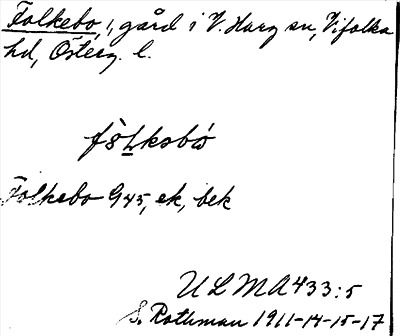 Folkebo, gård i V. Harg sn, Vifolka
hd, Österg. l.
fòḷksbo
Folkebo G45, ek, bek
ULMA 433:5
S. Rothman 1911-14-15-17